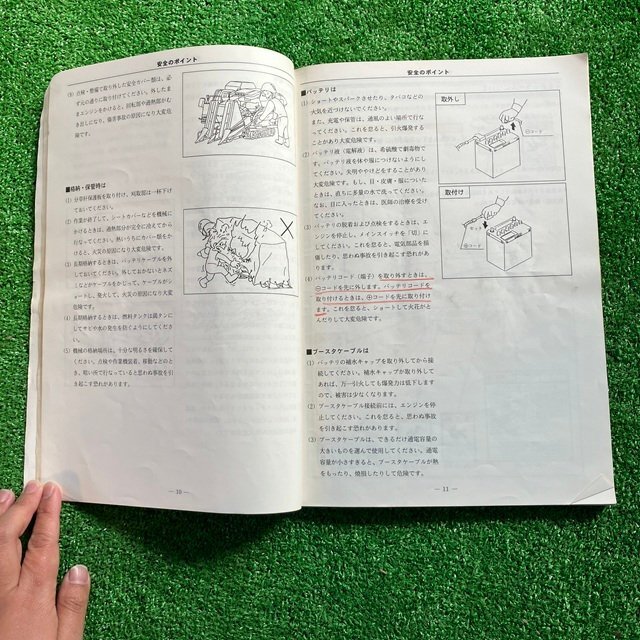 安全のポイント
(5) 点検・整備で取り外した安全カバー類は、必
ず元の通りに取り付けてください。外したま
まエンジンをかけると、回転部や過熱部がむ
き出しになり、傷害事故の原因になり大変危
険です。
■格納・保管時は
(1) 分草杆保護板を取り付け、刈取部は一杯下げ
ておいてください。
(2) 作業が終了して、シートカバーなどを機械に
かけるときは、過熱部分が完全に冷えてから
行なってください。熱いうちにカバー類をか
けると、火災の原因になり大変危険です。
(3) 長期格納するときは、バッテリケーブルを外
しておいてください。外しておかないとネズ
ミなどがケーブルをかじって、ケーブルがシ
ョートし、発火して、火災の原因になり大変
危険です。
(4) 長期格納するときは、燃料タンクは満タンに
してサビや水の発生を防ぐようにしてくださ
い。
(5) 機械の格納場所は、十分な明るさを確保して
ください。点検や作業機装着、移動などのと
き、暗い所で行なっていると思わぬ事故を引
き起こす恐れがあります。
— 10 —
安全のポイント
■バッテリは
(1) ショートやスパークさせたり、タバコなどの
火気を近づけないでください。
また、充電や保管は、通風のよい場所で行な
ってください。これを怠ると、引火爆発する
ことがあり大変危険です。
(2) バッテリ液（電解液）は、希硫酸で劇毒物で
す。バッテリ液を体や服につけないようにし
てください。失明ややけどをすることがあり
大変危険です。もし、目・皮膚・服についた
ときは、直ちに多量の水で洗ってください。
なお、目に入ったときは、医師の治療を受け
てください。
(3) バッテリの脱着および点検をするときは、エ
ンジンを停止し、メインスイッチを「切」に
してください。これを怠ると、電気部品を損
傷したり、思わぬ事故を引き起こす恐れがあ
ります。
(4) バッテリコード（端子）を取り外すときは、
⊖コードを先に外します。バッテリコードを
取り付けるときは、⊕コードを先に取り付け
ます。これを怠ると、ショートして火花がと
んだりして大変危険です。
■ブースタケーブルは
(1) バッテリの補水キャップを取り外してから接
続してください。補水キャップが取り外して
あれば、万一引火しても爆発力は低下します
ので、被害は少なくなります。
(2) ブースタケーブル接続前には、エンジンを停
止してください。これを怠ると、思わぬ事故
を引き起こす恐れがあります。
(3) ブースタケーブルは、できるだけ通電容量の
大きいものを選んで使用してください。通電
容量が小さすぎると、ブースタケーブルが熱
をもったり、焼損したりして危険です。
取外し
⊖コード
取付け
セット
⊕コード
— 11 —